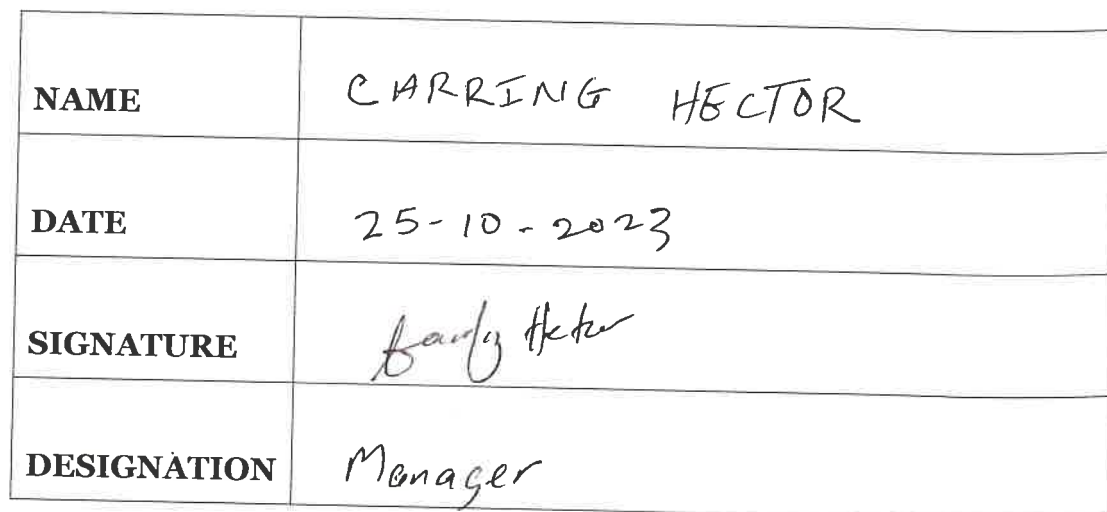 NAME CARRING HECTOR
DATE 25-10-2023
SIGNATURE Hector
DESIGNATION Manager